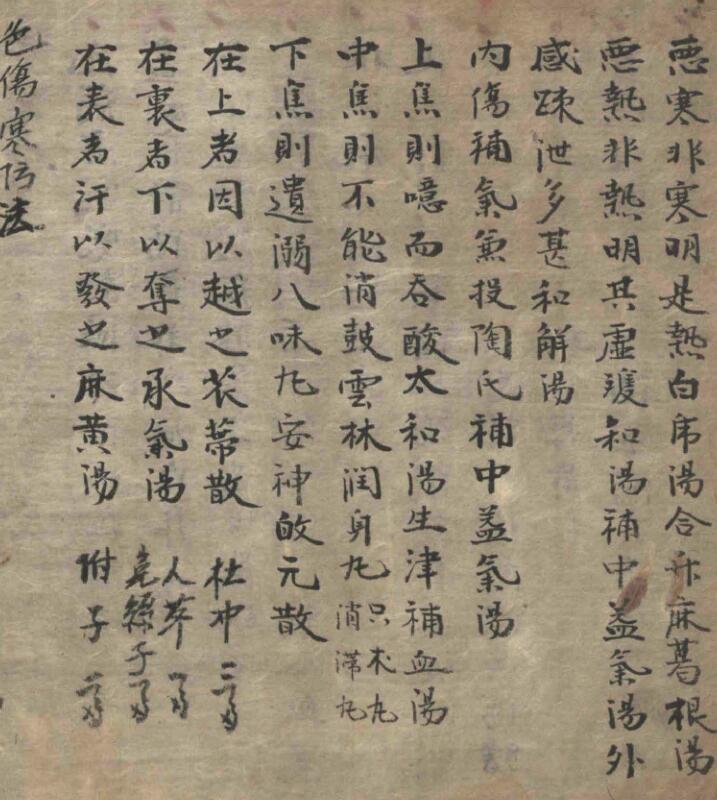 惡寒非寒明是熱白虎湯合升麻葛根湯
惡熱非熱明其虛獲知湯補中益氣湯外
感疎泄多甚和解湯
內傷補氣兼投陶氏補中益氣湯
上焦則噫而吞酸太和湯生津補血湯
中焦則不能消鼓雲林润身丸只朮丸
消滯丸
下焦則遺溺八味丸安神啟元散
在上者因以越之苽蒂散 杜冲三
在裏者下以奪之承氣湯 人萃
兎絲子
在表者汗以發之麻黄湯 附子
色傷寒防法